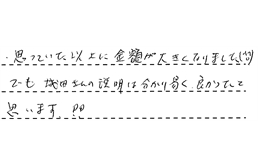 ・思っていた以上に金額が大きくなりました(笑)
でも 成田さんの説明は分かり易く、良かったと
思います。!!